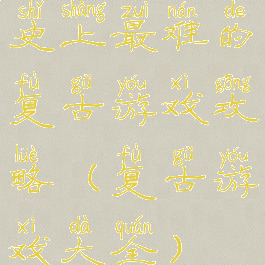 shǐ shàng zuì nán de
史上最难的
fù gǔ yóu xì gōng
复古游戏攻
lüè （ fù gǔ yóu
略（复古游
xì dà quán
戏大全）